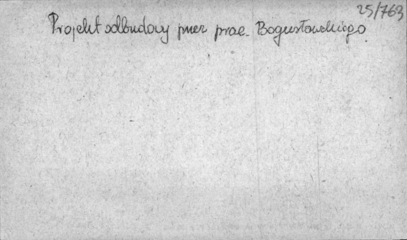 25/763
Projekt odbudowy przez prac. Bogusławskiego